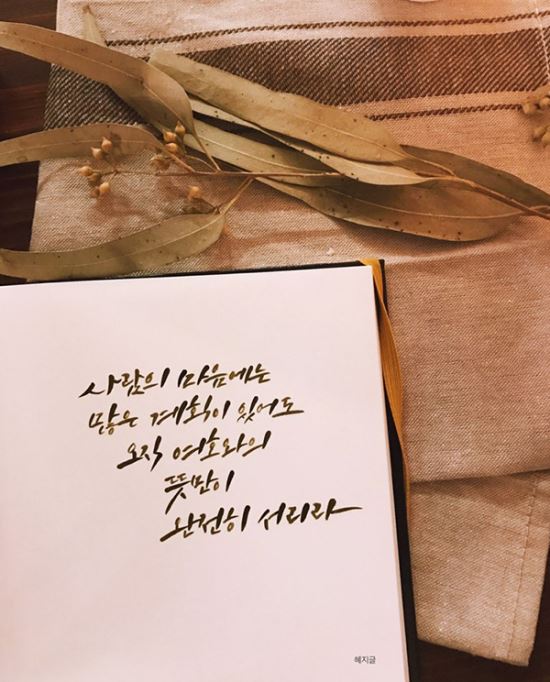 사람의 마음에는
많은 계획이 있어도
오직 여호와의
뜻만이
완전히 서리라
혜지글